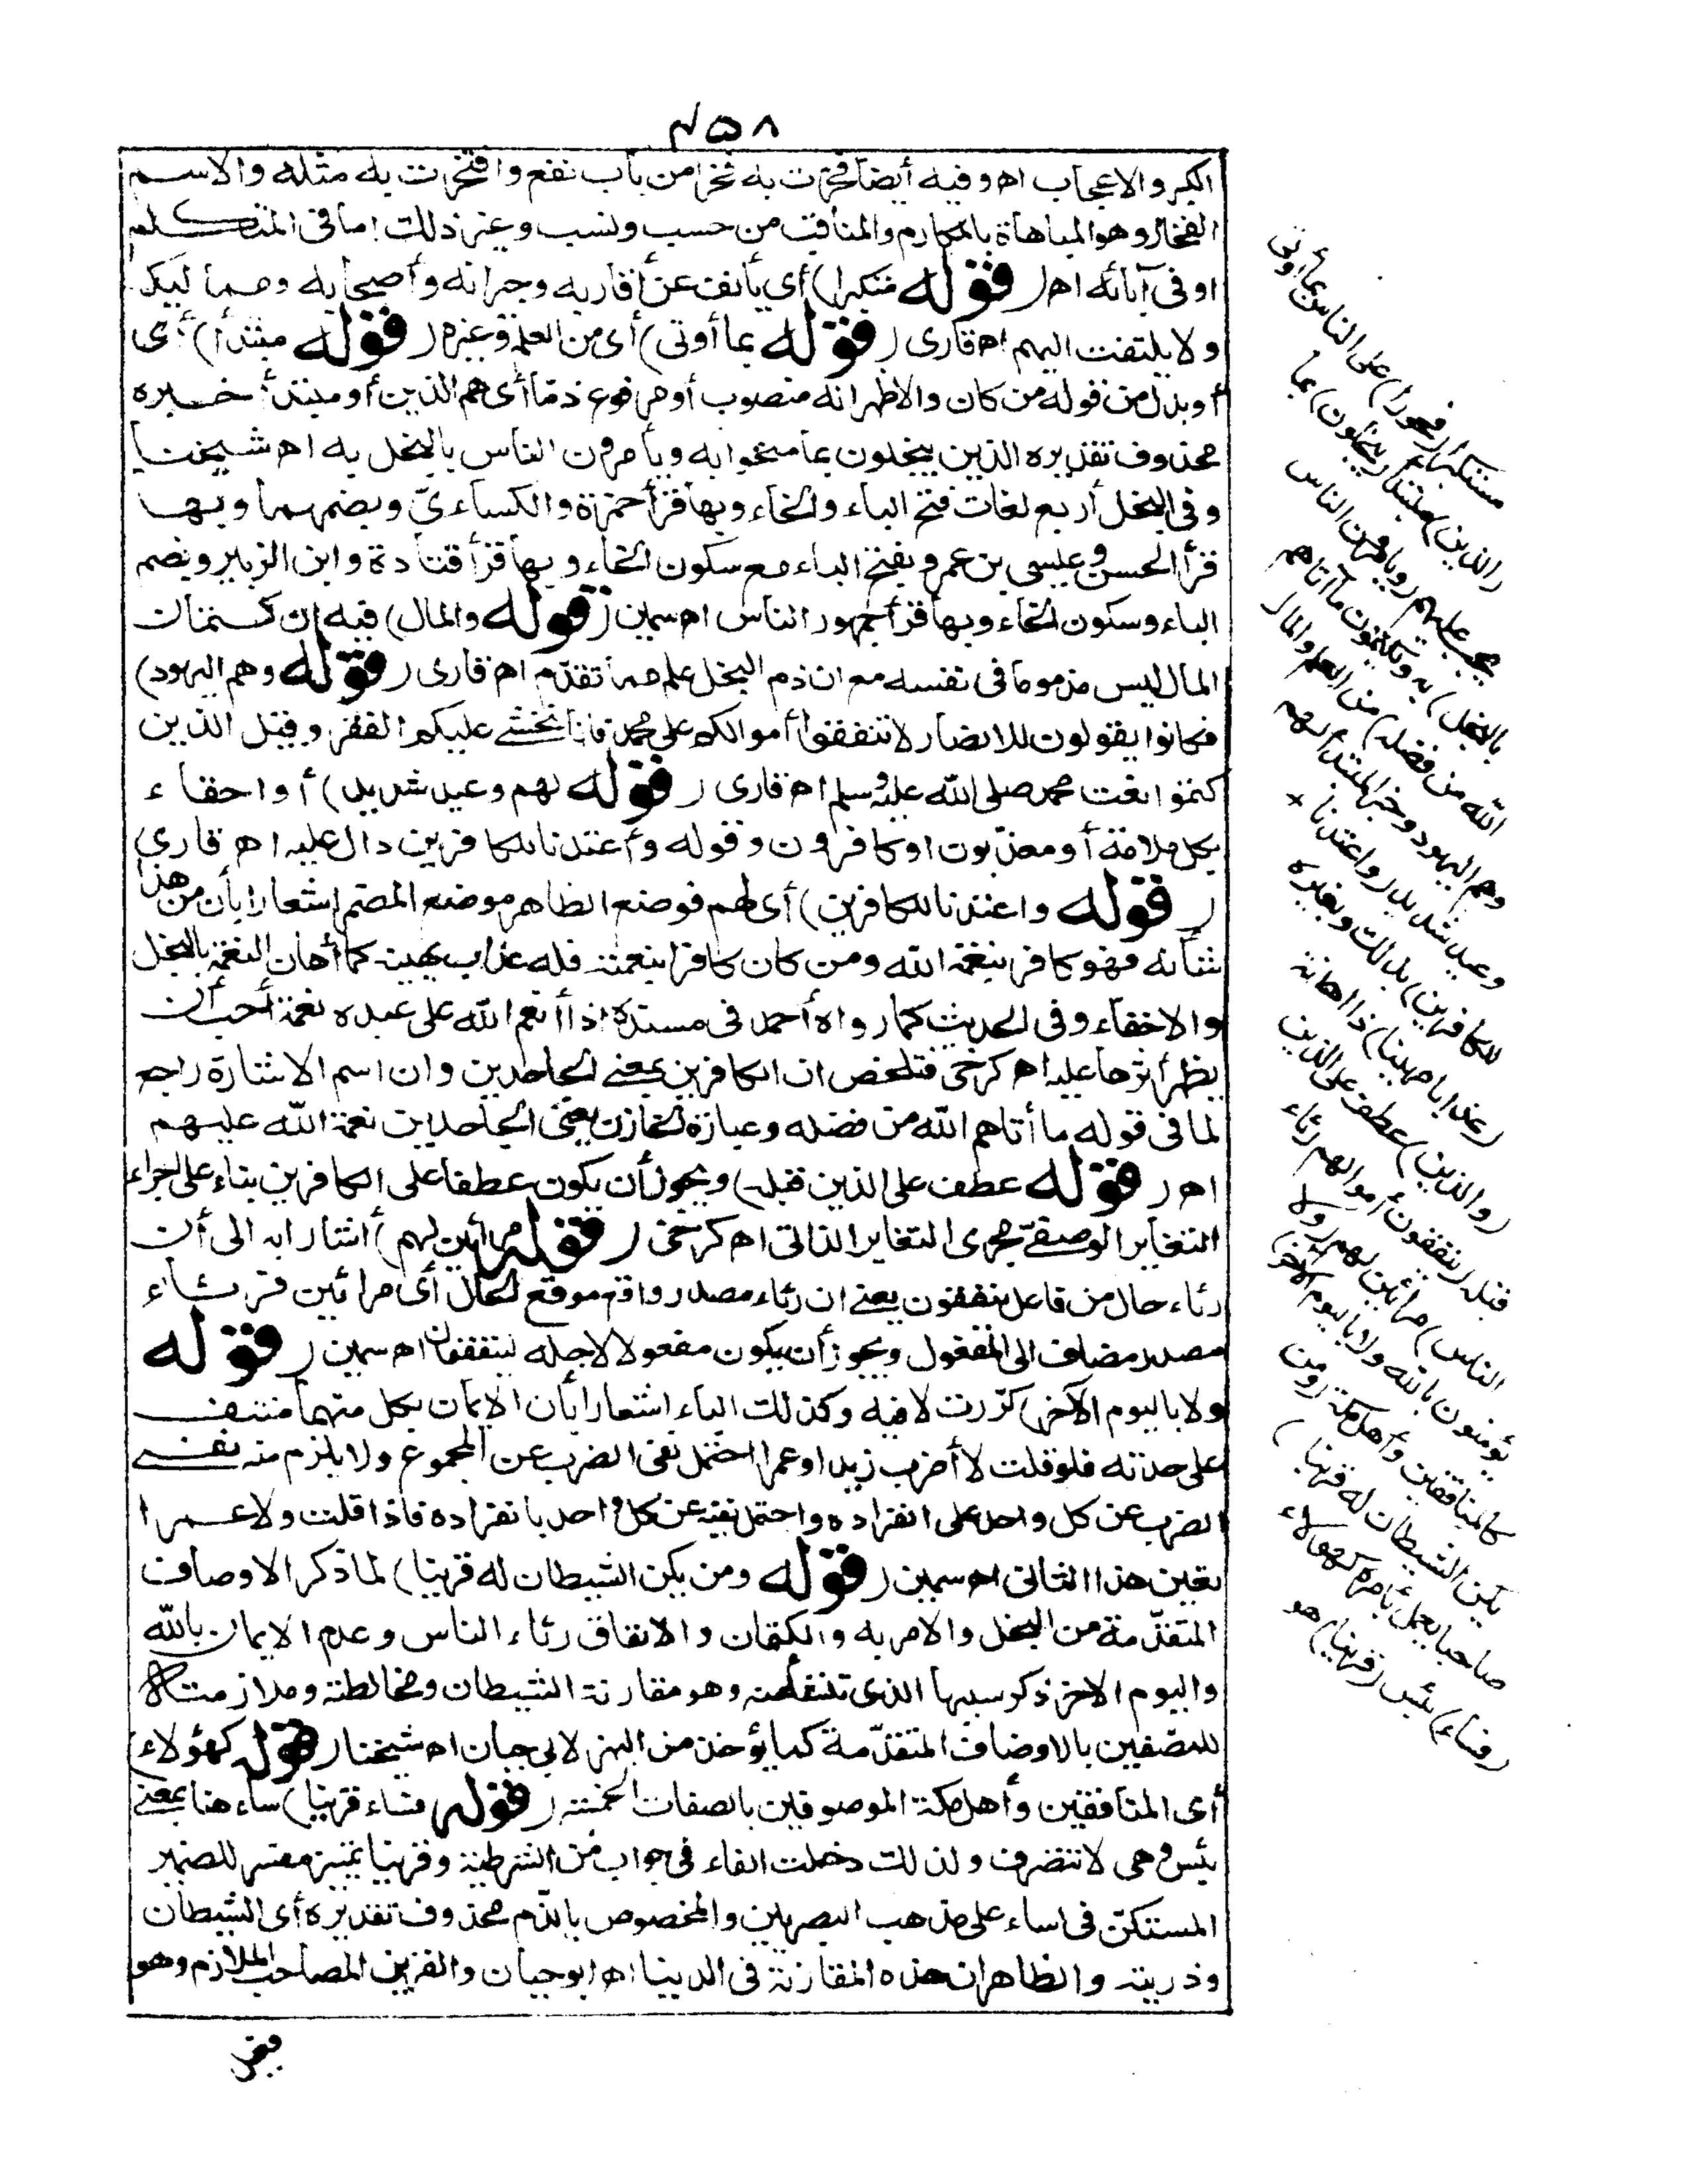 ٤٥٨
الكبر والاعجاب اه وفيه أيضا فخرت به فخرا من باب نفع وافتخرت به مثله والاسم
الفخار وهو المباهاة بالمكارم والمناقب من حسب ونسب وغير ذلك اما فى المتكلم
او فى آبائه اه (قوله متكبرا) أى يأنف عن أقاربه وجيرانه وأصحابه
ولا يلتفت اليهم اه قارى (قوله بما أوتى) أى من العلم وغيره (قوله مبتدأ) أى
أو بدل من قوله من كان والاظهر انه منصوب أو مرفوع ذما أى هم الذين أو مبتدأ خبره
محذوف تقديره الذين يبخلون بما منحوا به ويأمرون الناس بالبخل به اه شيخنا
وفى البخل أربع لغات فتح الباء والخاء وبها قرأ حمزة والكساءىّ وبضمهما وبها
قرأ الحسن وعيسى بن عمرو بفتح الباء مع سكون الخاء وبها قرأ قتادة وابن الزبير وبضم
الباء وسكون الخاء وبها قرأ جمهور الناس اه سمين (قوله والمال) فيه ان كتمان
المال ليس مذموما فى نفسه مع ان ذم البخل علم مما تقدّم اه قارى (قوله وهم اليهود)
فكانوا يقولون للانصار لا تنفقوا أموالكم على محمد فانا نخشى عليكم الفقر وقيل الذين
كتموا نعت محمد صلى الله عليه وسلم اه قارى (قوله لهم وعيد شديد) أو احقاء
بكل ملامة أو معذبون او كافرون وقوله وأعتدنا للكافرين دال عليه اه قارى
(قوله واعتدنا للكافرين) أى لهم فوضع الظاهر موضع المضمر اشعارا بأن من هذا
شأنه فهو كافر بنعمة الله ومن كان كافرا بنعمته فله عذاب يهينه كما أهان النعمة بالبخل
والاخفاء وفى الحديث كما رواه أحمد فى مسنده اذا أنعم الله على عبده نعمة أحب أن
يظهر أثرها عليه اه كرخى فتلخص ان الكافرين بمعنى الجاحدين وان اسم الاشارة راجع
لما فى قوله ما أتاهم الله من فضله وعبارة الخازن يعنى الجاحدين نعمة الله عليهم
اه (قوله عطف على الذين قبله) ويجوز أن يكون عطفا على الكافرين بناء على اجراء
التغاير الوصفى مجرى التغاير الذاتى اه كرخى (قوله مرائين لهم) أشار به الى أن
رئاء حال من فاعل ينفقون يعنى ان رئاء مصدر واقع موقع الحال أى مرائين فرئاء
مصدر مضاف الى المفعول ويجوز أن يكون مفعولا لاجله لينفقون اه سمين (قوله
ولا باليوم الآخر) كرّرت لا فيه وكذلك الباء اشعارا بأن الايمان بكل منهما منتف
على حدته فلو قلت لا أضرب زيدا وعمرا احتمل نفى الضرب عن المجموع ولا يلزم منه نفى
الضرب عن كل واحد على انفراده واحتمل نفيه عن كل واحد بانفراده فاذا قلت ولا عمرا
تعين هذا الثانى اه سمين (قوله ومن يكن الشيطان له قرينا) لما ذكر الاوصاف
المتقدّمة من البخل والامر به والكتمان والانفاق رئاء الناس وعدم الايمان بالله
واليوم الاخر ذكر سببها الذى تنشأ منه وهو مقارنة الشيطان ومخالطته وملازمته
للمتصفين بالاوصاف المتقدّمة كما يؤخذ من النهر لابى حيان اه شيخنا (قوله كهؤلاء)
أى المنافقين وأهل مكة الموصوفين بالصفات الخمسة (قوله فساء قرينا) ساء هنا بمعنى
بئس وهى لا تتصرف ولذلك دخلت الفاء فى جواب من الشرطية وقرينا تمييز مفسر للضمير
المستكنّ فى ساء على مذهب البصريين والمخصوص بالذم محذوف تقديره أى الشيطان
وذريته والظاهر ان هذه المقارنة فى الدنيا اه ابو حيان والقرين المصاحب الملازم وهو
متكبرا (فخورا) على الناس بما أوتى
(الذين) مبتدأ (يبخلون) بما
يجب عليهم (ويأمرون الناس
بالبخل) به (ويكتمون ما آتاهم
الله من فضله) من العلم والمال
وهم اليهود وخبر المبتدأ لهم
وعيد شديد (واعتدنا
للكافرين) بذلك وبغيره
(عذابا مهينا) ذا اهانة
(والذين) عطف على الذين
قبله (ينفقون أموالهم رئاء
الناس) مرائين لهم (ولا
يؤمنون بالله ولا باليوم الآخر)
كالمنافقين وأهل مكة (ومن
يكن الشيطان له قرينا)
صاحبا يعمل بأمره كهؤلاء
(فساء) بئس (قرينا) هو